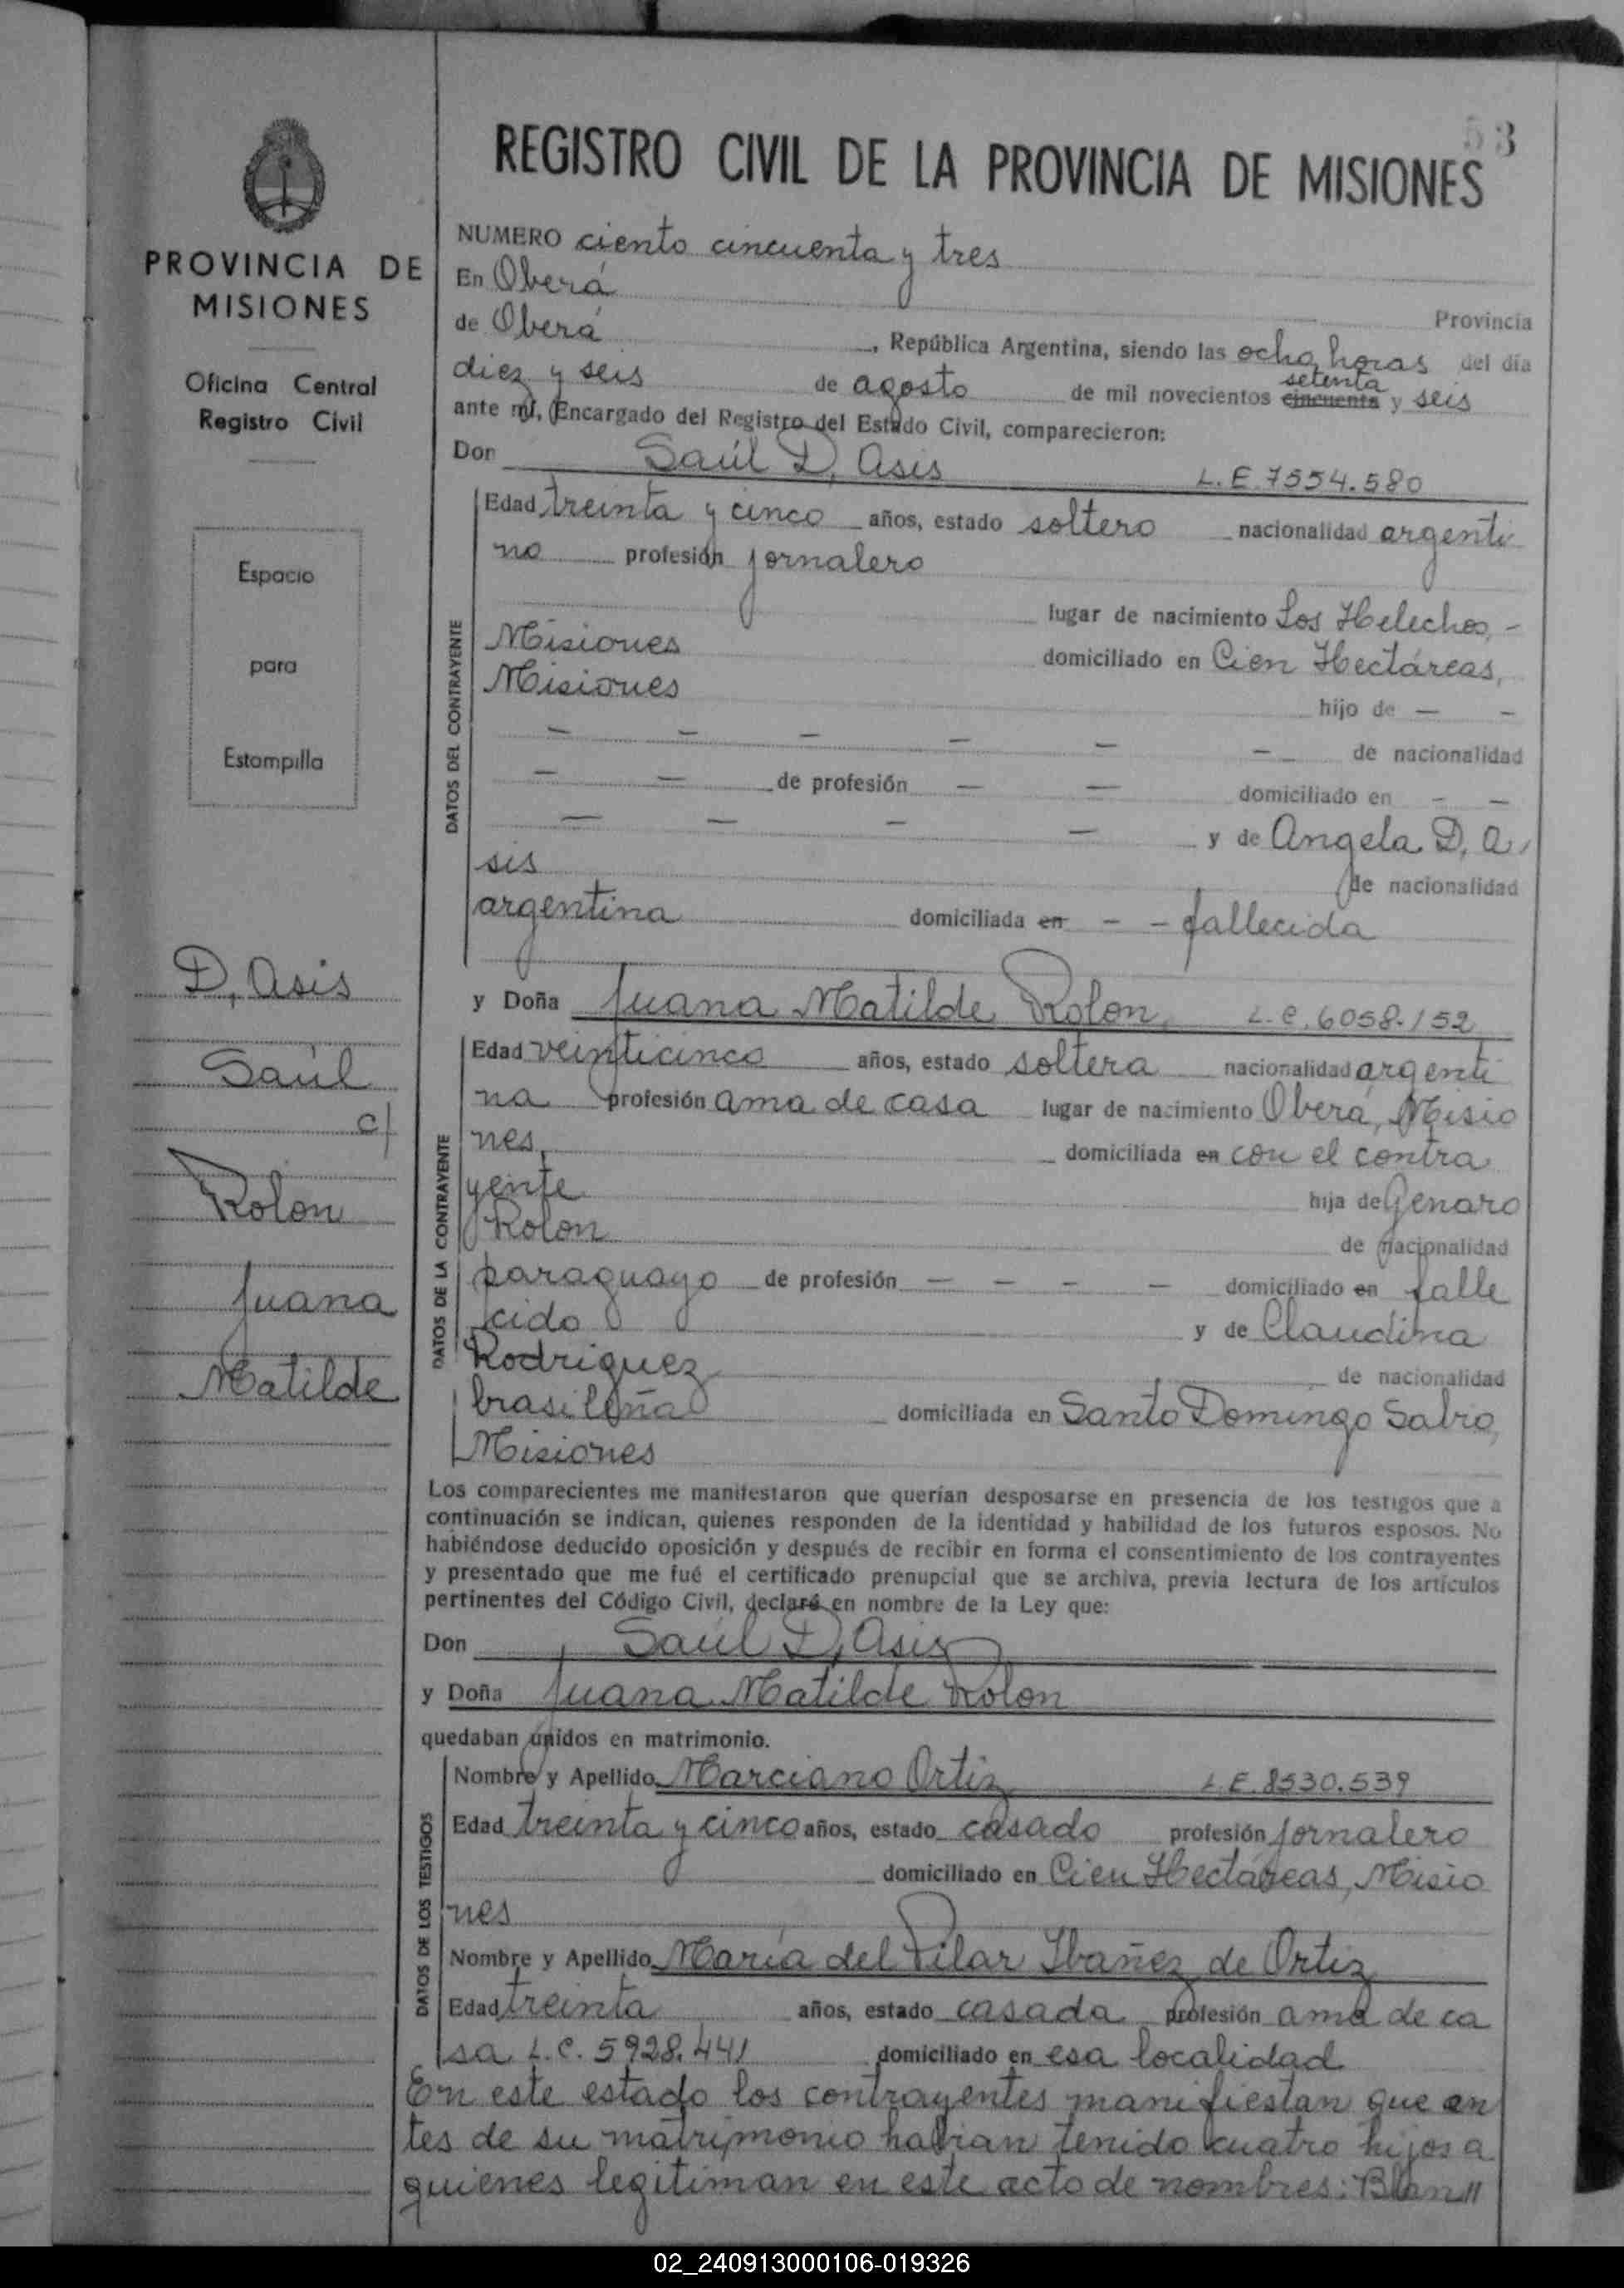 53
REGISTRO CIVIL DE LA PROVINCIA DE MISIONES
PROVINCIA DE
MISIONES
Oficina Central
Registro Civil
Espacio
para
Estampilla
D, Asis
Saúl
c/
Rolon
Juana
Matilde
NUMERO ciento cincuenta y tres
En Oberá
Provincia
de Oberá, República Argentina, siendo las ocho horas del día
diez y seis de agosto de mil novecientos cincuenta setenta y seis
ante mí, Encargado del Registro del Estado Civil, comparecieron:
Don Saúl D, Asis L.E. 7554.580
DATOS DEL CONTRAYENTE
Edad treinta y cinco años, estado soltero nacionalidad argenti
no profesión jornalero
lugar de nacimiento Los Helechos, -
Misiones domiciliado en Cien Hectáreas,
Misiones
hijo de — —
— — — — — — de nacionalidad
— — de profesión — — domiciliado en — —
— — — — y de Angela D, A
sis
de nacionalidad
argentina domiciliada en - - fallecida
y Doña Juana Matilde Rolon, L.C. 6058.152
DATOS DE LA CONTRAYENTE
Edad veinticinco años, estado soltera nacionalidad argenti
na profesión ama de casa lugar de nacimiento Oberá, Misio
nes, domiciliada en con el contra
yente
hija de Genaro
Rolon
de nacionalidad
paraguayo de profesión — — — — domiciliado en falle
cido y de Claudina
Rodriguez
de nacionalidad
brasileña domiciliada en Santo Domingo Sabio,
Misiones
Los comparecientes me manifestaron que querían desposarse en presencia de los testigos que a
continuación se indican, quienes responden de la identidad y habilidad de los futuros esposos. No
habiéndose deducido oposición y después de recibir en forma el consentimiento de los contrayentes
y presentado que me fué el certificado prenupcial que se archiva, previa lectura de los artículos
pertinentes del Código Civil, declaré en nombre de la Ley que:
Don Saúl D, Asis
y Doña Juana Matilde Rolon
quedaban unidos en matrimonio.
DATOS DE LOS TESTIGOS
Nombre y Apellido Marciano Ortiz L.E. 8530.539
Edad treinta y cinco años, estado casado profesión jornalero
domiciliado en Cien Hectáreas, Misio
nes
Nombre y Apellido María del Pilar Ibañez de Ortiz
Edad treinta años, estado casada profesión ama de ca
sa L.C. 5928.441 domiciliado en esa localidad
En este estado los contrayentes manifiestan que an
tes de su matrimonio habian tenido cuatro hijos a
quienes legitiman en este acto de nombres: Blan//
02_240913000106-019326